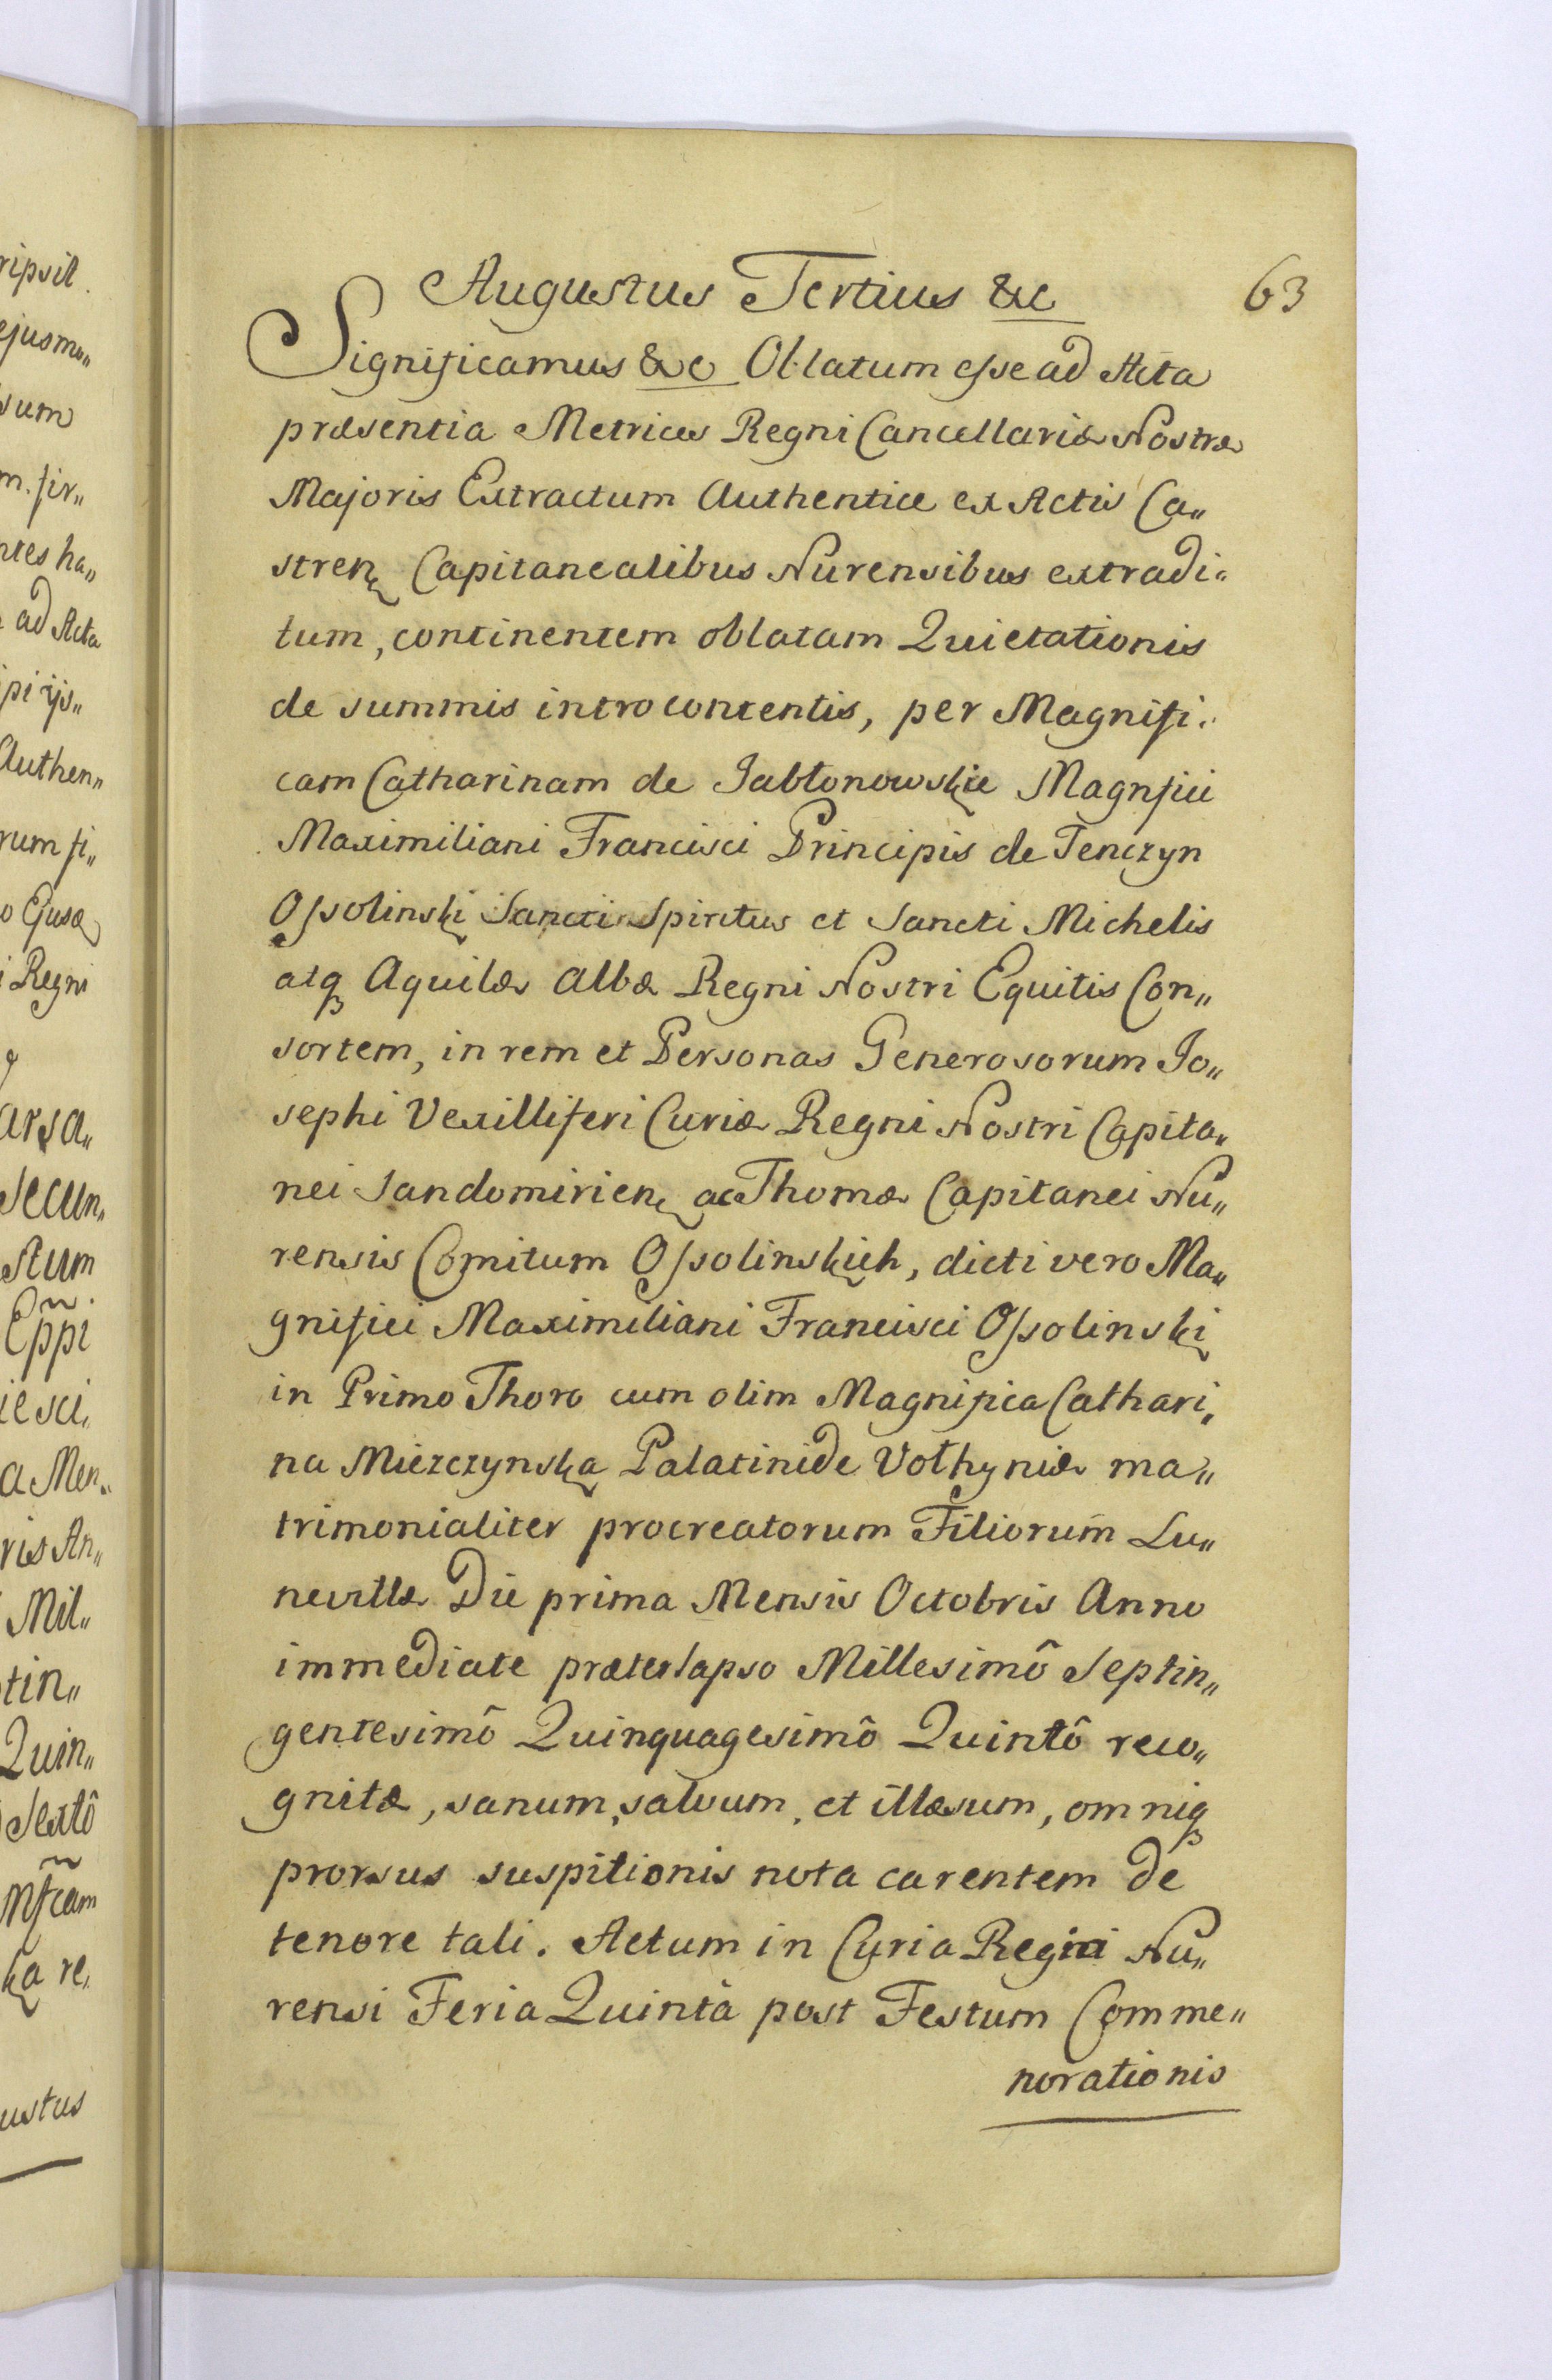 63
Augustus Tertius &c
Significamus &c Oblatum esse ad Acta
præsentia Metrices Regni Cancellariæ Nostræ
Majoris Extractum Authenticæ ex Actis Ca„
stren Capitanealibus Nurensibus extradi„
tum, continentem oblatam Quietationis
de summis introcontentis, per Magnifi„
cam Catharinam de Jabłonowskie Magnfici
Maximiliani Francisci Principis de Tenczyn
Ossolinski Sancti Spiritus et Sancti Michelis
atq Aquilæ Albæ Regni Nostri Equitis Con„
sortem, in rem et Personas Generosorum Jo„
sephi Vexilliferi Curiæ Regni Nostri Capita„
nei Sandomirien ac Thomæ Capitanei Nu„
rensis Comitum Ossolinskich, dicti vero Ma„
gnifici Maximiliani Francisci Ossolinski
in Primo Thoro cum olim Magnifica Cathari„
na Miezczynska Palatinide Vołhyniæ ma„
trimonialiter procreatorum Filiorum Lu„
nevillæ Die prima Mensis Octobris Anno
immediate præterlapso Millesimô Septin„
gentesimô Quinquagesimô Quintô reco„
gnitæ, sanum, salvum, et illæsum, omniq
prorsus suspitionis nota carentem de
tenore tali. Actum in Curia Regia Nu„
rensi Feria Quintâ post Festum Comme„
norationis